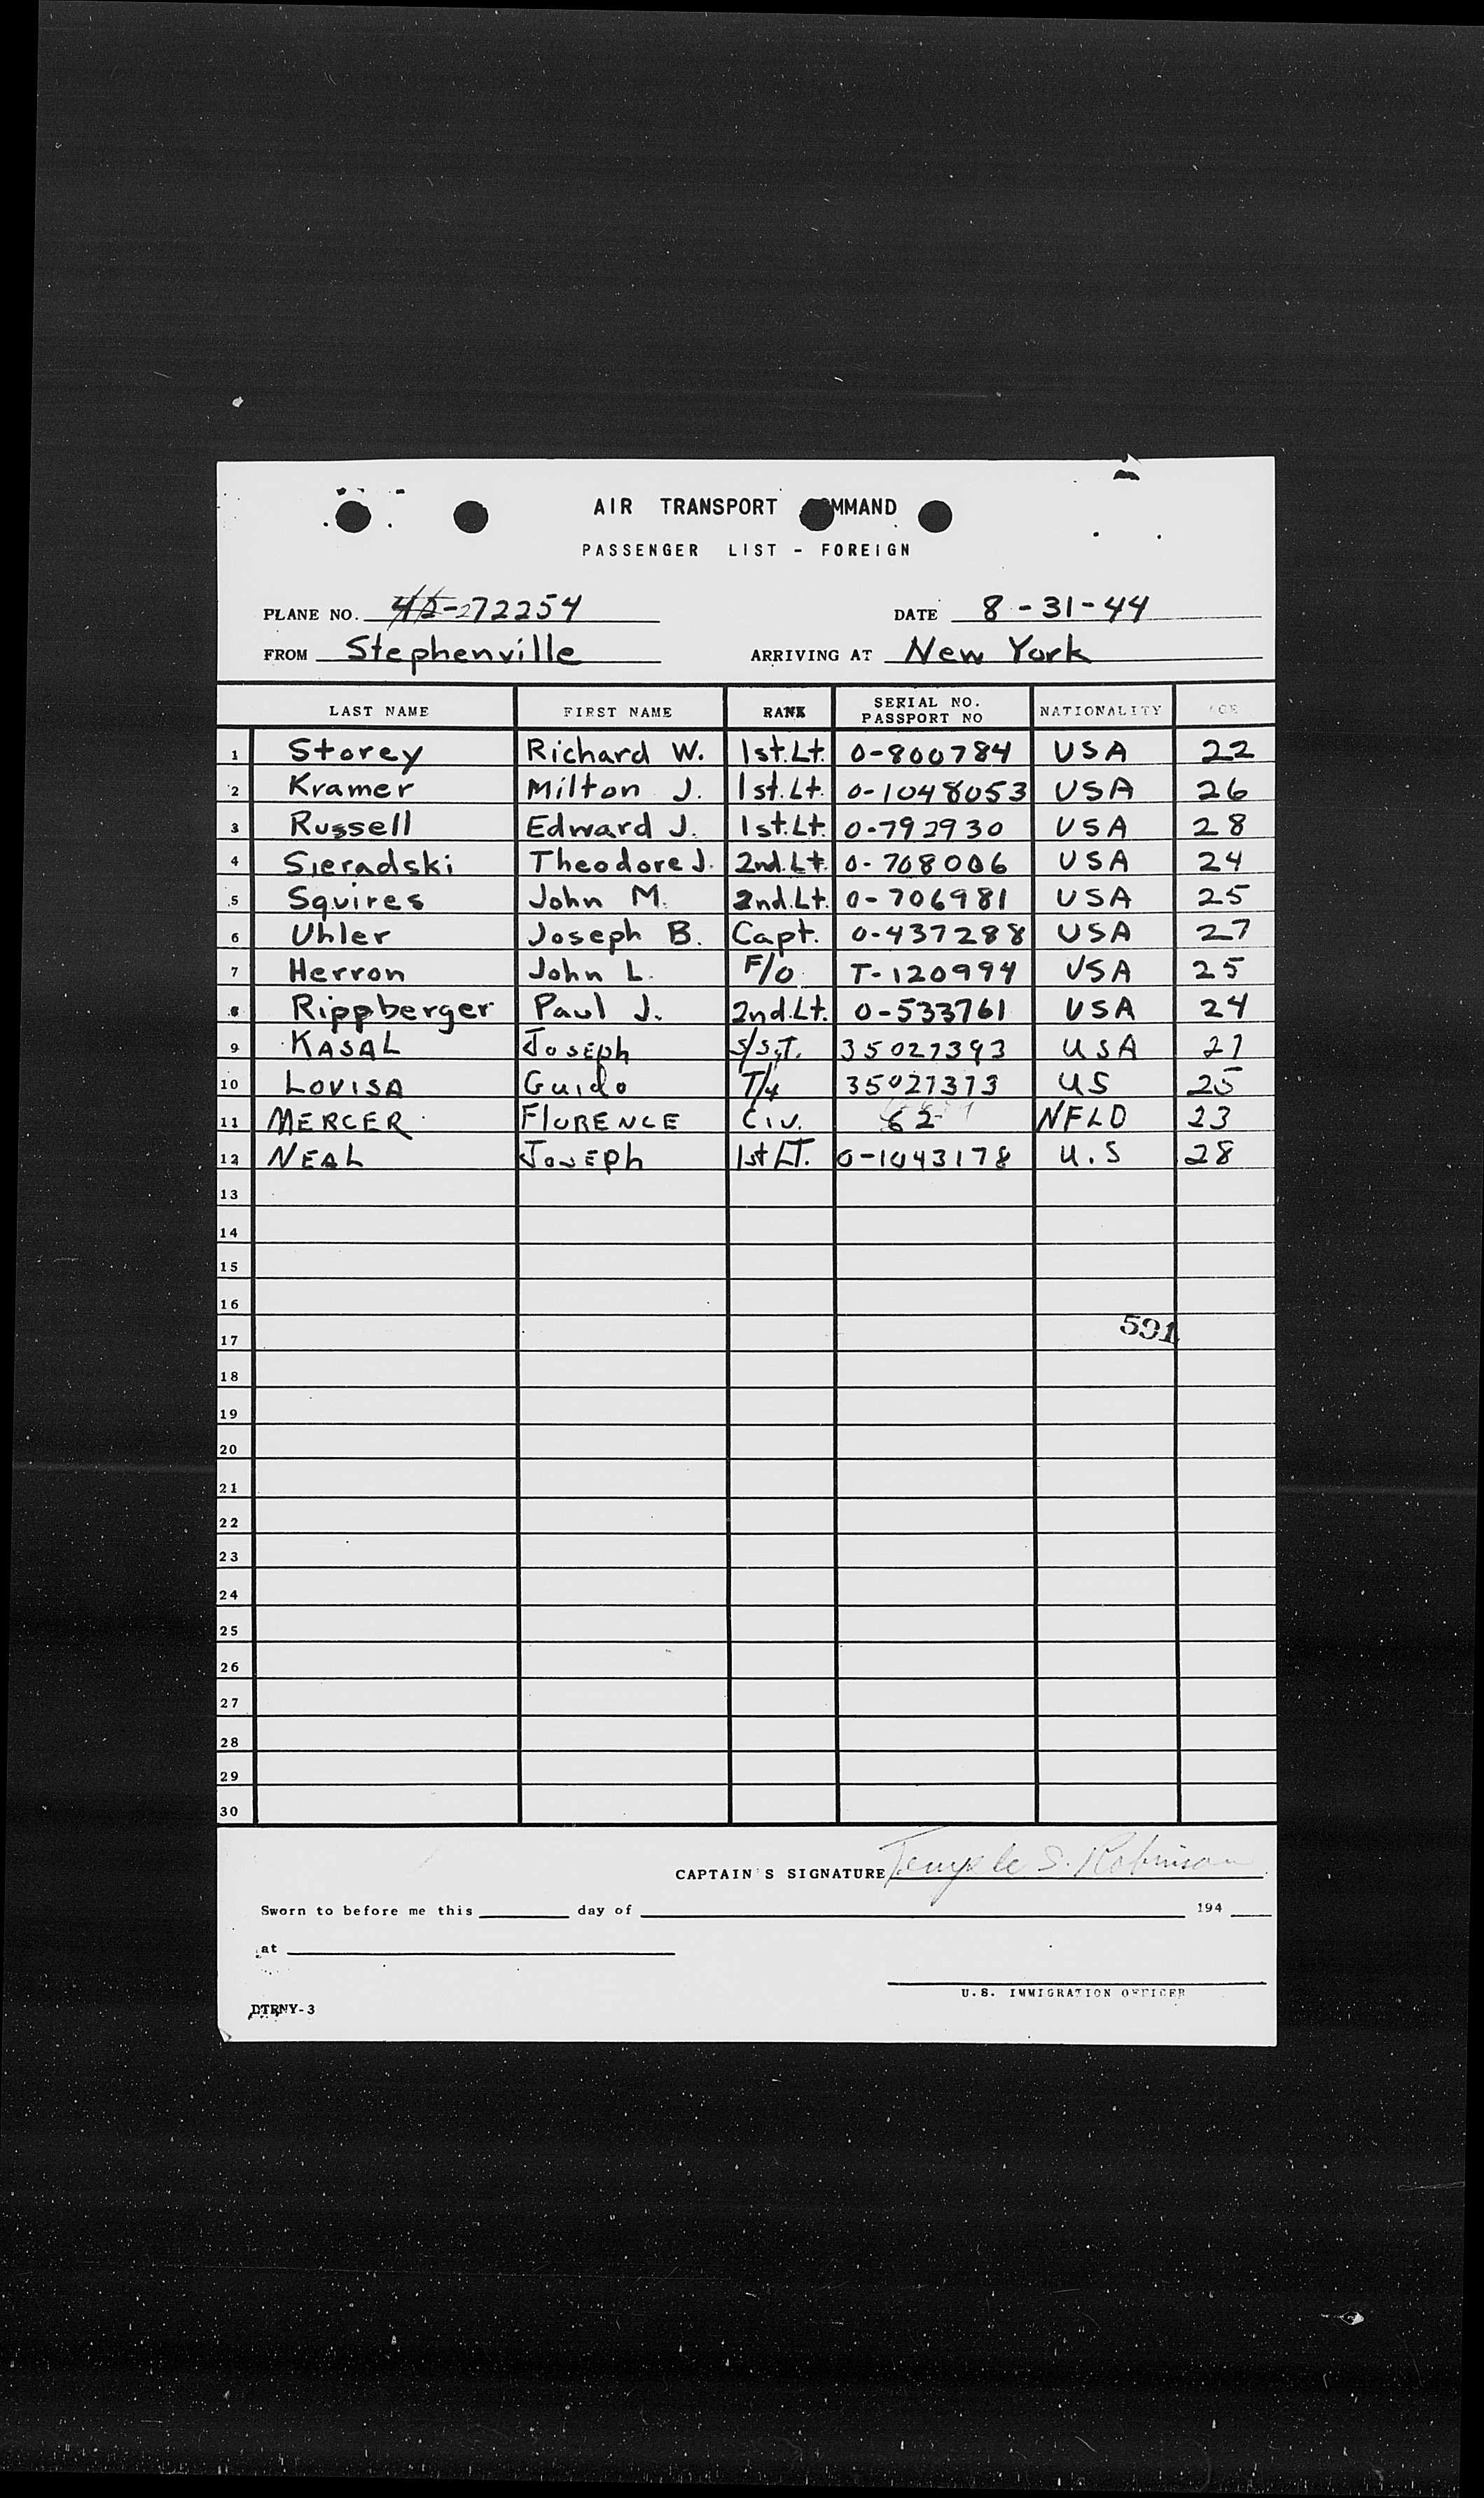 AIR TRANSPORT COMMAND
PASSENGER LIST - FOREIGN
PLANE NO. 42-272254 DATE 8-31-44
FROM Stephenville ARRIVING AT New York
LAST NAME FIRST NAME RANK SERIAL NO. PASSPORT NO NATIONALITY AGE
1 Storey Richard W. 1st.Lt. 0-800784 USA 22
2 Kramer Milton J. 1st.Lt. 0-1048053 USA 26
3 Russell Edward J. 1st.Lt. 0-792930 USA 28
4 Sieradski Theodore J. 2nd.Lt. 0-708006 USA 24
5 Squires John M. 2nd.Lt. 0-706981 USA 25
6 Uhler Joseph B. Capt. 0-437288 USA 27
7 Herron John L. F/O T-120994 USA 25
8 Rippberger Paul J. 2nd.Lt. 0-533761 USA 24
9 KASAL JosEph S/SgT. 35027393 USA 27
10 LOVISA Guido T/4 35027373 US 25
11 MERCER FLORENCE Civ. 62 NFLD 23
12 NEAL JosEph 1st LT. 0-1043178 U.S 28
13
14
15
16
17 591
18
19
20
21
22
23
24
25
26
27
28
29
30
CAPTAIN'S SIGNATURE Temple S. Robinson
Sworn to before me this day of 194
at
U.S. IMMIGRATION OFFICER
DTRNY-3